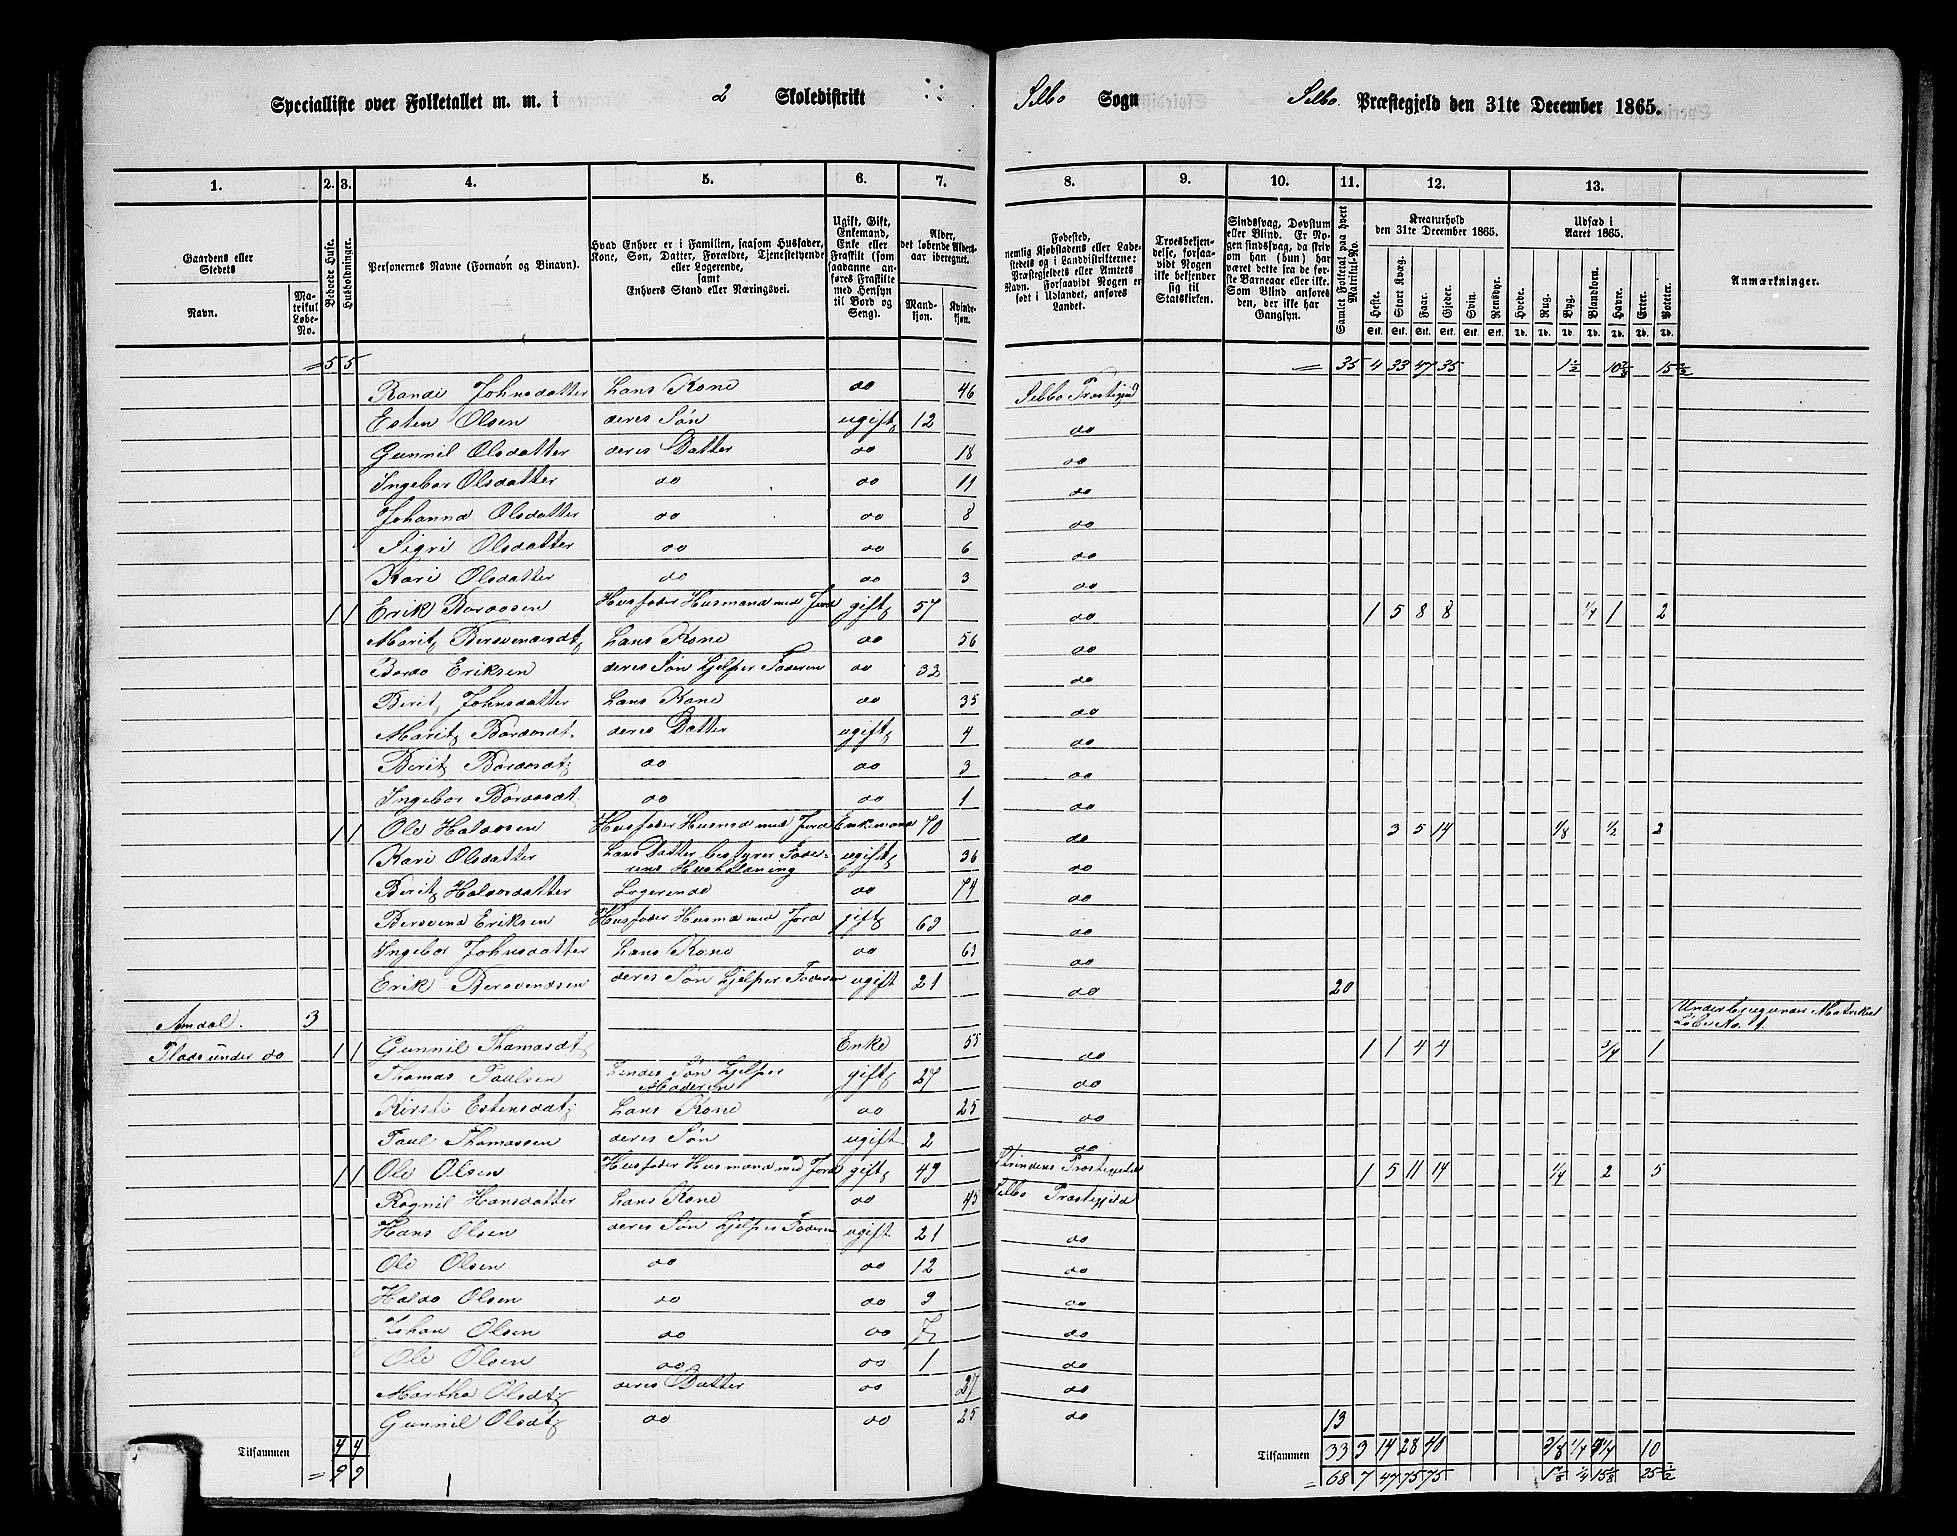 Specialliste over Folketallet m. m. i 2 Skoledistrikt Selbo Sogn Selbo Præstegjeld den 31te December 1865.
1. 2. 3. 4. 5. 6. 7. 8. 9. 10. 11. 12. 13.
Gaardens eller Stedets
Navn.
Matrikul Løbe-No.
Beboede Huse.
Husholdninger.
Personernes Navne (Fornavn og Binavn).
Hvad Enhver er i Familien, saasom Husfader, Kone, Søn, Datter, Forældre, Tjenestetyende eller Logerende, samt Enhvers Stand eller Næringsvei.
Ugift, Gift, Enkemand, Enke eller Fraskilt (som saadanne anføres Fraskilte med Hensyn til Bord og Seng).
Alder, det løbende Alders-aar iberegnet.
Mandkjøn. Kvindekjøn.
Fødested, nemlig Kjøbstadens eller Ladestedets og i Landdistrikterne: Præstegjeldets eller Amtets Navn. Forsaavidt Nogen er født i Udlandet, anføres Landet.
Troesbekjendelse, forsaavidt Nogen ikke bekjender sig til Statskirken.
Sindssvag, Døvstum eller Blind. Er Nogen sindssvag, da skriv om han (hun) har været dette fra de første Barneaar eller ikke. Som Blind anføres den, der ikke har Gangsyn.
Samlet Folketal paa hvert Matrikul-No.
Kreaturhold den 31te December 1865.
Heste. Stort Kvæg. Faar. Gjeder. Svin. Rensdyr.
Udsæd i Aaret 1865.
Hvede. Rug. Byg. Blandkorn. Havre. Erter. Poteter.
Anmærkninger.
= 5 5 = 35 4 33 47 35 1 1/2
Randi Johnsdatter hans Kone do 46 Selbo Præstegjeld
Esten Olsen deres Søn ugift 12 do
Gunnil Olsdatter deres Datter do 18 do
Ingebor Olsdatter do do 11 do
Johanna Olsdatter do do 8 do
Sigri Olsdatter do do 6 do
Kari Olsdatter do do 3 do
1 1 Erik Baroosen Husfader Husmand med Jord gift 57 do 1 5 8 8 1/4 1 2
Marit Bersvendsdt hans Kone do 56 do
Bardo Eriksen deres Søn hjelper Faderen do 32 do
Berit Johnsdatter hans Kone do 35 do
Marit Baroosdt. deres Datter ugift 4 do
Berit Baroosdt do do 3 do
Ingebor Baroosdt do do 1 do
1 1 Ole Haldosen Husfader Husmd med Jord Enkemand 70 do 3 5 14 1/8 1/2 2
Kari Olsdatter hans Datter bestyrer Faderens Husholdning ugift 36 do
Berit Haldosdatter Logerende do 74 do
Bersvend Eriksen Husfader Husmd med Jord gift 63 do
Ingebor Johnsdatter hans Kone do 63 do
Erik Bersvendsen deres Søn hjelper Faderen ugift 21 do 20
Amdal. 3 Underbruges Matrikul Løbe No. 1
Plads under do 1 1 Gunnil Thomasdt Enke 55 do 1 1 4 4 3/4 1
Thomas Paulsen hendes Søn hjelper Moderen gift 27 do
Kirsti Estensdt hans Kone do 25 do
Paul Thomassen deres Søn ugift 2 do
1 1 Ole Olsen Husfader Husmand med Jord gift 49 Strindens Præstegjeld 1 5 11 14 1/4 2 5
Ragnil Hansdatter hans Kone do 45 Selbo Præstegjeld
Hans Olsen deres Søn hjelper Faderen ugift 21 do
Ole Olsen do do 12 do
Haldo Olsen do do 9 do
Johan Olsen do do 7 do
Ole Olsen do do 1 do
Martha Olsdt deres Datter do 27 do
Gunnil Olsdt do do 25 do 13
Tilsammen 4 4 Tilsammen 33 3 14 28 40 3/8 1/4 10
= 9 9 = 68 7 47 75 75 1/4 15 25 1/2